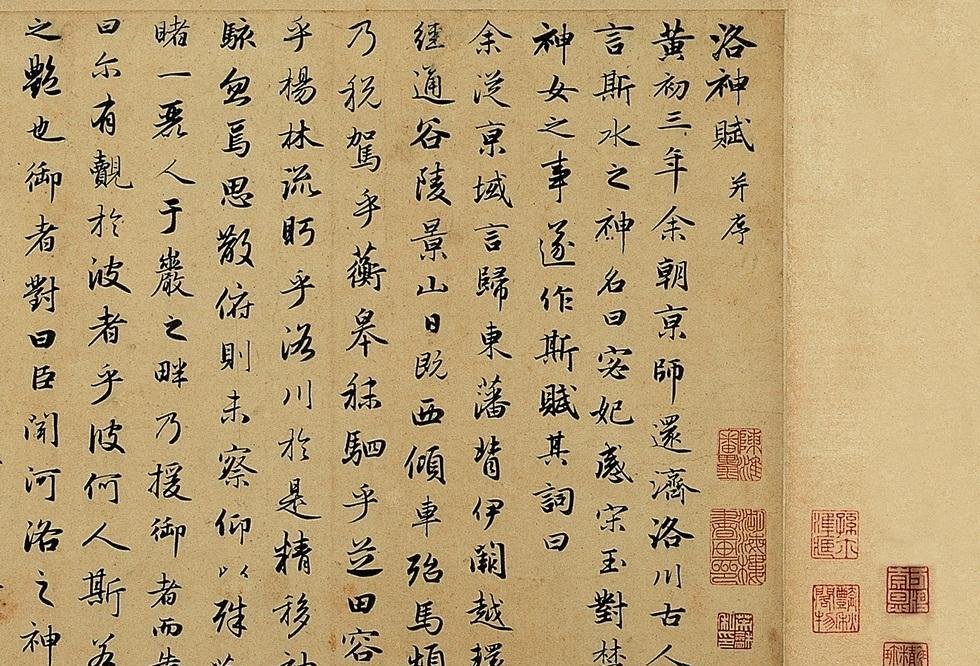 洛神賦 并序
黄初三年余朝京師還濟洛川古人
言斯水之神名曰宓妃感宋玉對楚
神女之事遂作斯賦其詞曰
余從京域言歸東藩背伊闕越轘
經通谷陵景山日既西傾車殆馬煩
乃稅駕乎蘅皋秣駟乎芝田容
乎楊林流眄乎洛川於是精移神
駭忽焉思散俯則未察仰以殊觀
睹一麗人于巖之畔乃援御者而告
曰尔有覿於波者乎彼何人斯若
之艷也御者對曰臣聞河洛之神